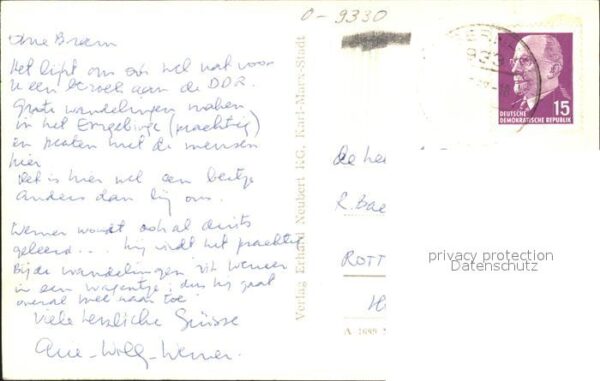 Het lijkt ons wel wat voor
u een bezoek aan de DDR.
Grote wandelingen maken
in het Erzgebirge (prachtig)
en praten met de mensen
hier
Het is hier wel een beetje
anders dan bij ons.
Werner wordt ook al duits
geleerd... hij vindt het prachtig
Bij de wandelingen zit Werner
in een wagentje, dus hij gaat
overal mee naar toe
Viele herzliche Grüsse
Werner.
0-9330
Verlag Erhard Neubert KG, Karl-Marx-Stadt
15
DEUTSCHE
DEMOKRATISCHE REPUBLIK
de
R. Bae
ROTT
H
A 1689
privacy protection
Datenschutz